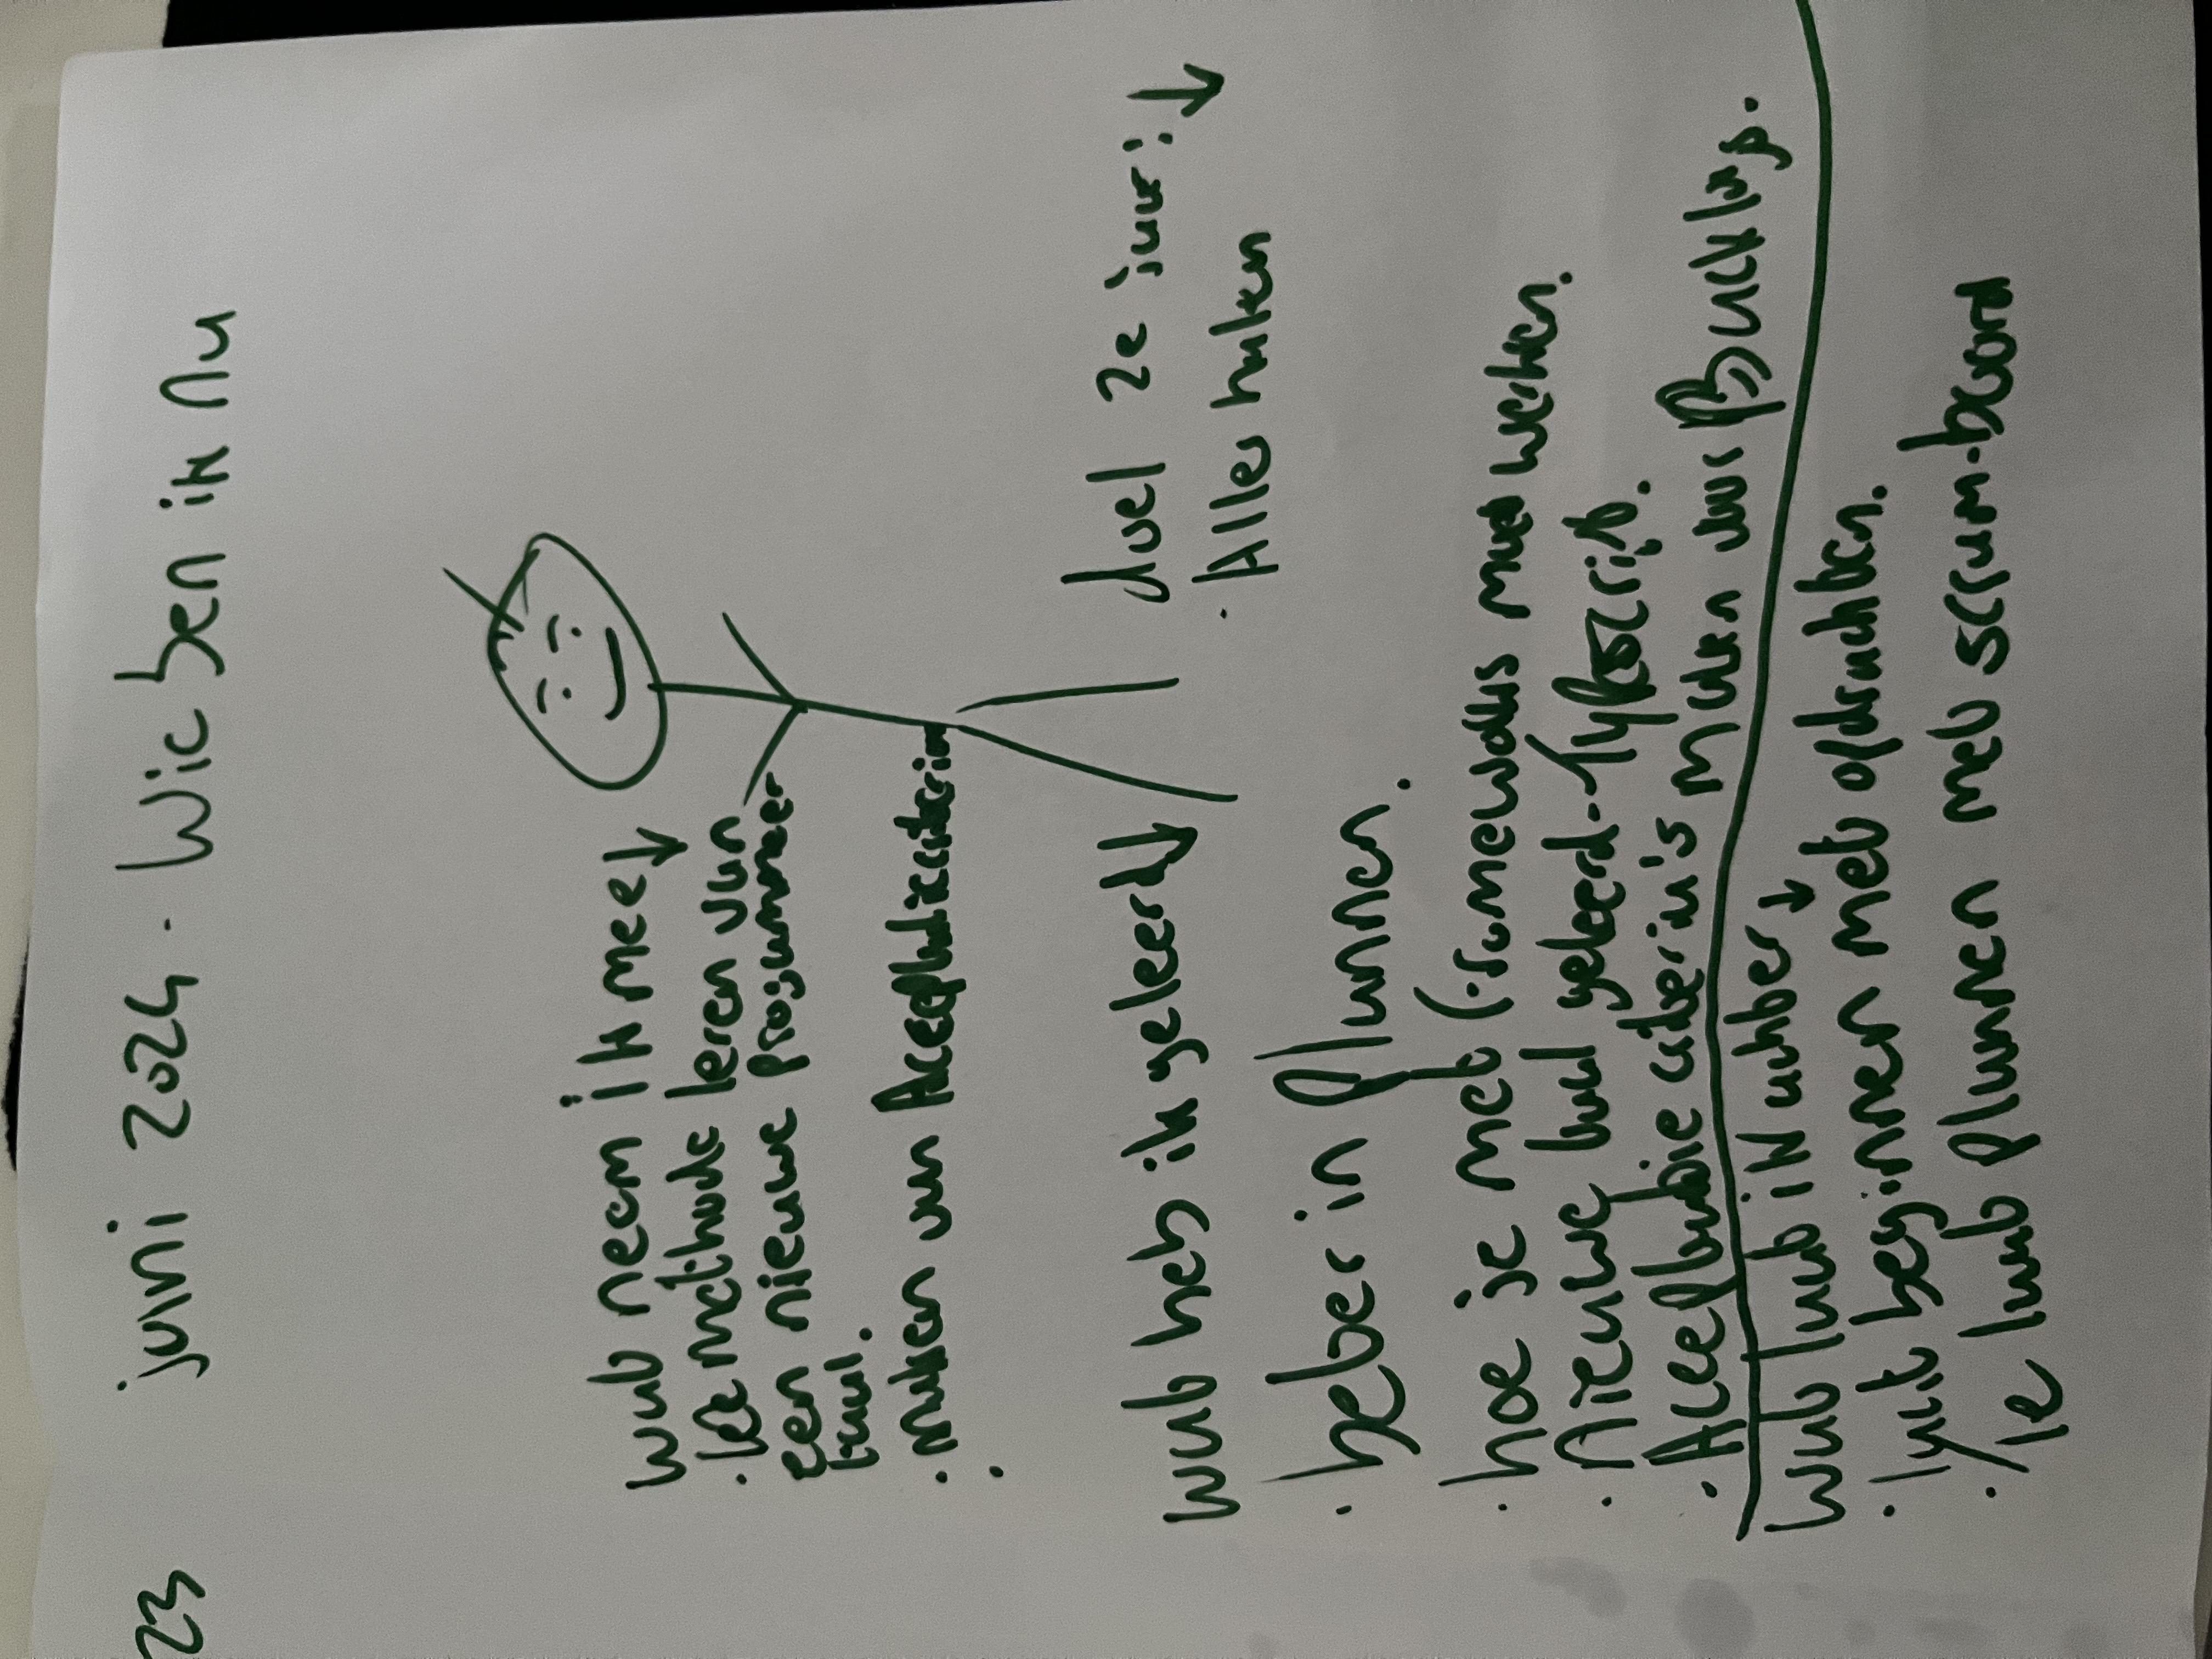 23 juni 2024 - Wie ben ik nu
wat neem ik mee ↓
· methode leren van
een nieuwe Programmeer
taal.
· maken van Acceptatiecriteria
·
wat heb ik geleerd ↓
doel 2e jaar: ↓
· Alles halen
· beter in Plannen.
· hoe je met Frameworks moet werken.
· Nieuwe taal geleerd - Typescript.
- Acceptatie criteria's maken voor Backlogs.
Wat laat ik achter ↓
· laat beginnen met opdrachten.
· Te laat Plannen met scrum-board